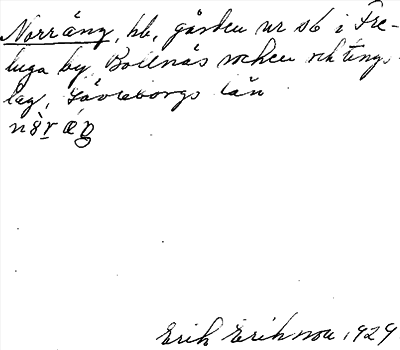 Norräng, hb, gården nr 56 i Fre-
luga by Bollnäs socken och tings-
lag, Gävleborgs län
Erik Eriksson 1929